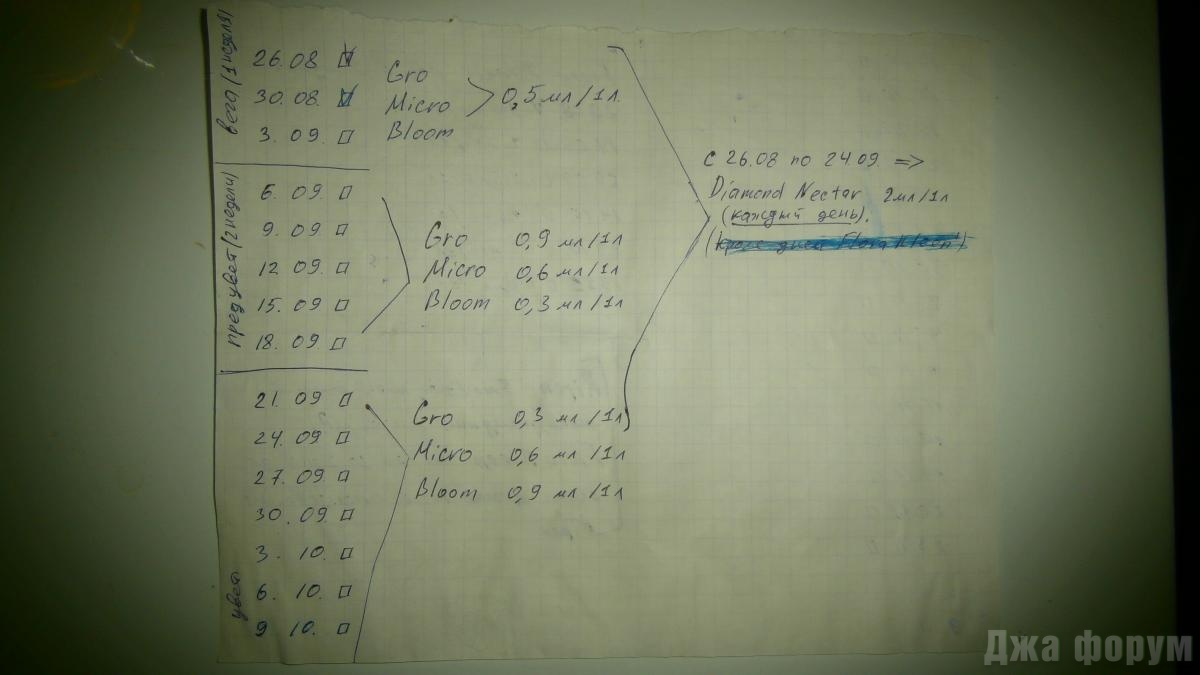 вега (1 неделя)
26.08
30.08.
3. 09.
Gro
Micro
Bloom
0,5 мл/1л.
предцвет (2 недели)
6. 09.
9. 09
12. 09.
15. 09
18. 09.
Gro 0,9 мл/1л
Micro 0,6 мл/1л
Bloom 0,3 мл/1л
цвет
21. 09
24. 09
27. 09
30. 09.
3. 10.
6. 10.
9 10.
Gro 0,3 мл/1л
Micro 0,6 мл/1л
Bloom 0,9 мл/1л
с 26.08 по 24.09. =>
Diamond Nectar 2мл/1л
(каждый день).
(кроме дней Flora Kleen)
Джа форум